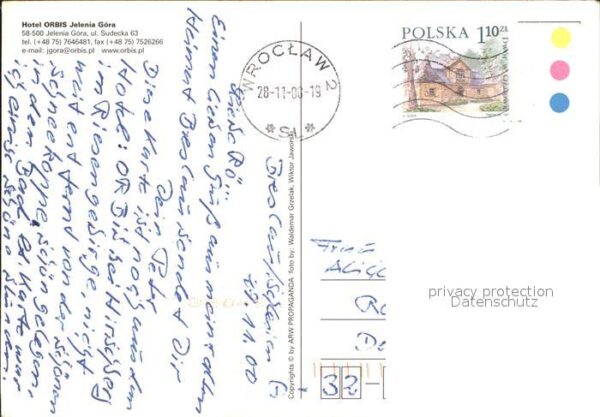 Hotel ORBIS Jelenia Góra
58-500 Jelenia Góra, ul. Sudecka 63
tel. (+48 75) 7646481, fax (+48 75) 7526266
e-mail: jgora@orbis.pl www.orbis.pl
WROCŁAW 2
28-11-00-19
* SL *
POLSKA 110 zł
Breslau/Schlesien
27.11.00
Liebe
Einen lieben Gruß aus meiner alten
Heimat Breslau sendet Dir
Dein Peter
Diese Karte ist noch aus dem
Hotel: ORBIS bei Hirschberg
im Riesengebirge, nicht
weit entfernt von der schönen
Schneekoppe schön gelegen,
in dem Bad
ich einige schöne Stunden.
Copyrights © by ARW PROPAGANDA foto by: Waldemar Grzelak, Wiktor Jaworski
Frau
privacy protection
Datenschutz
32-